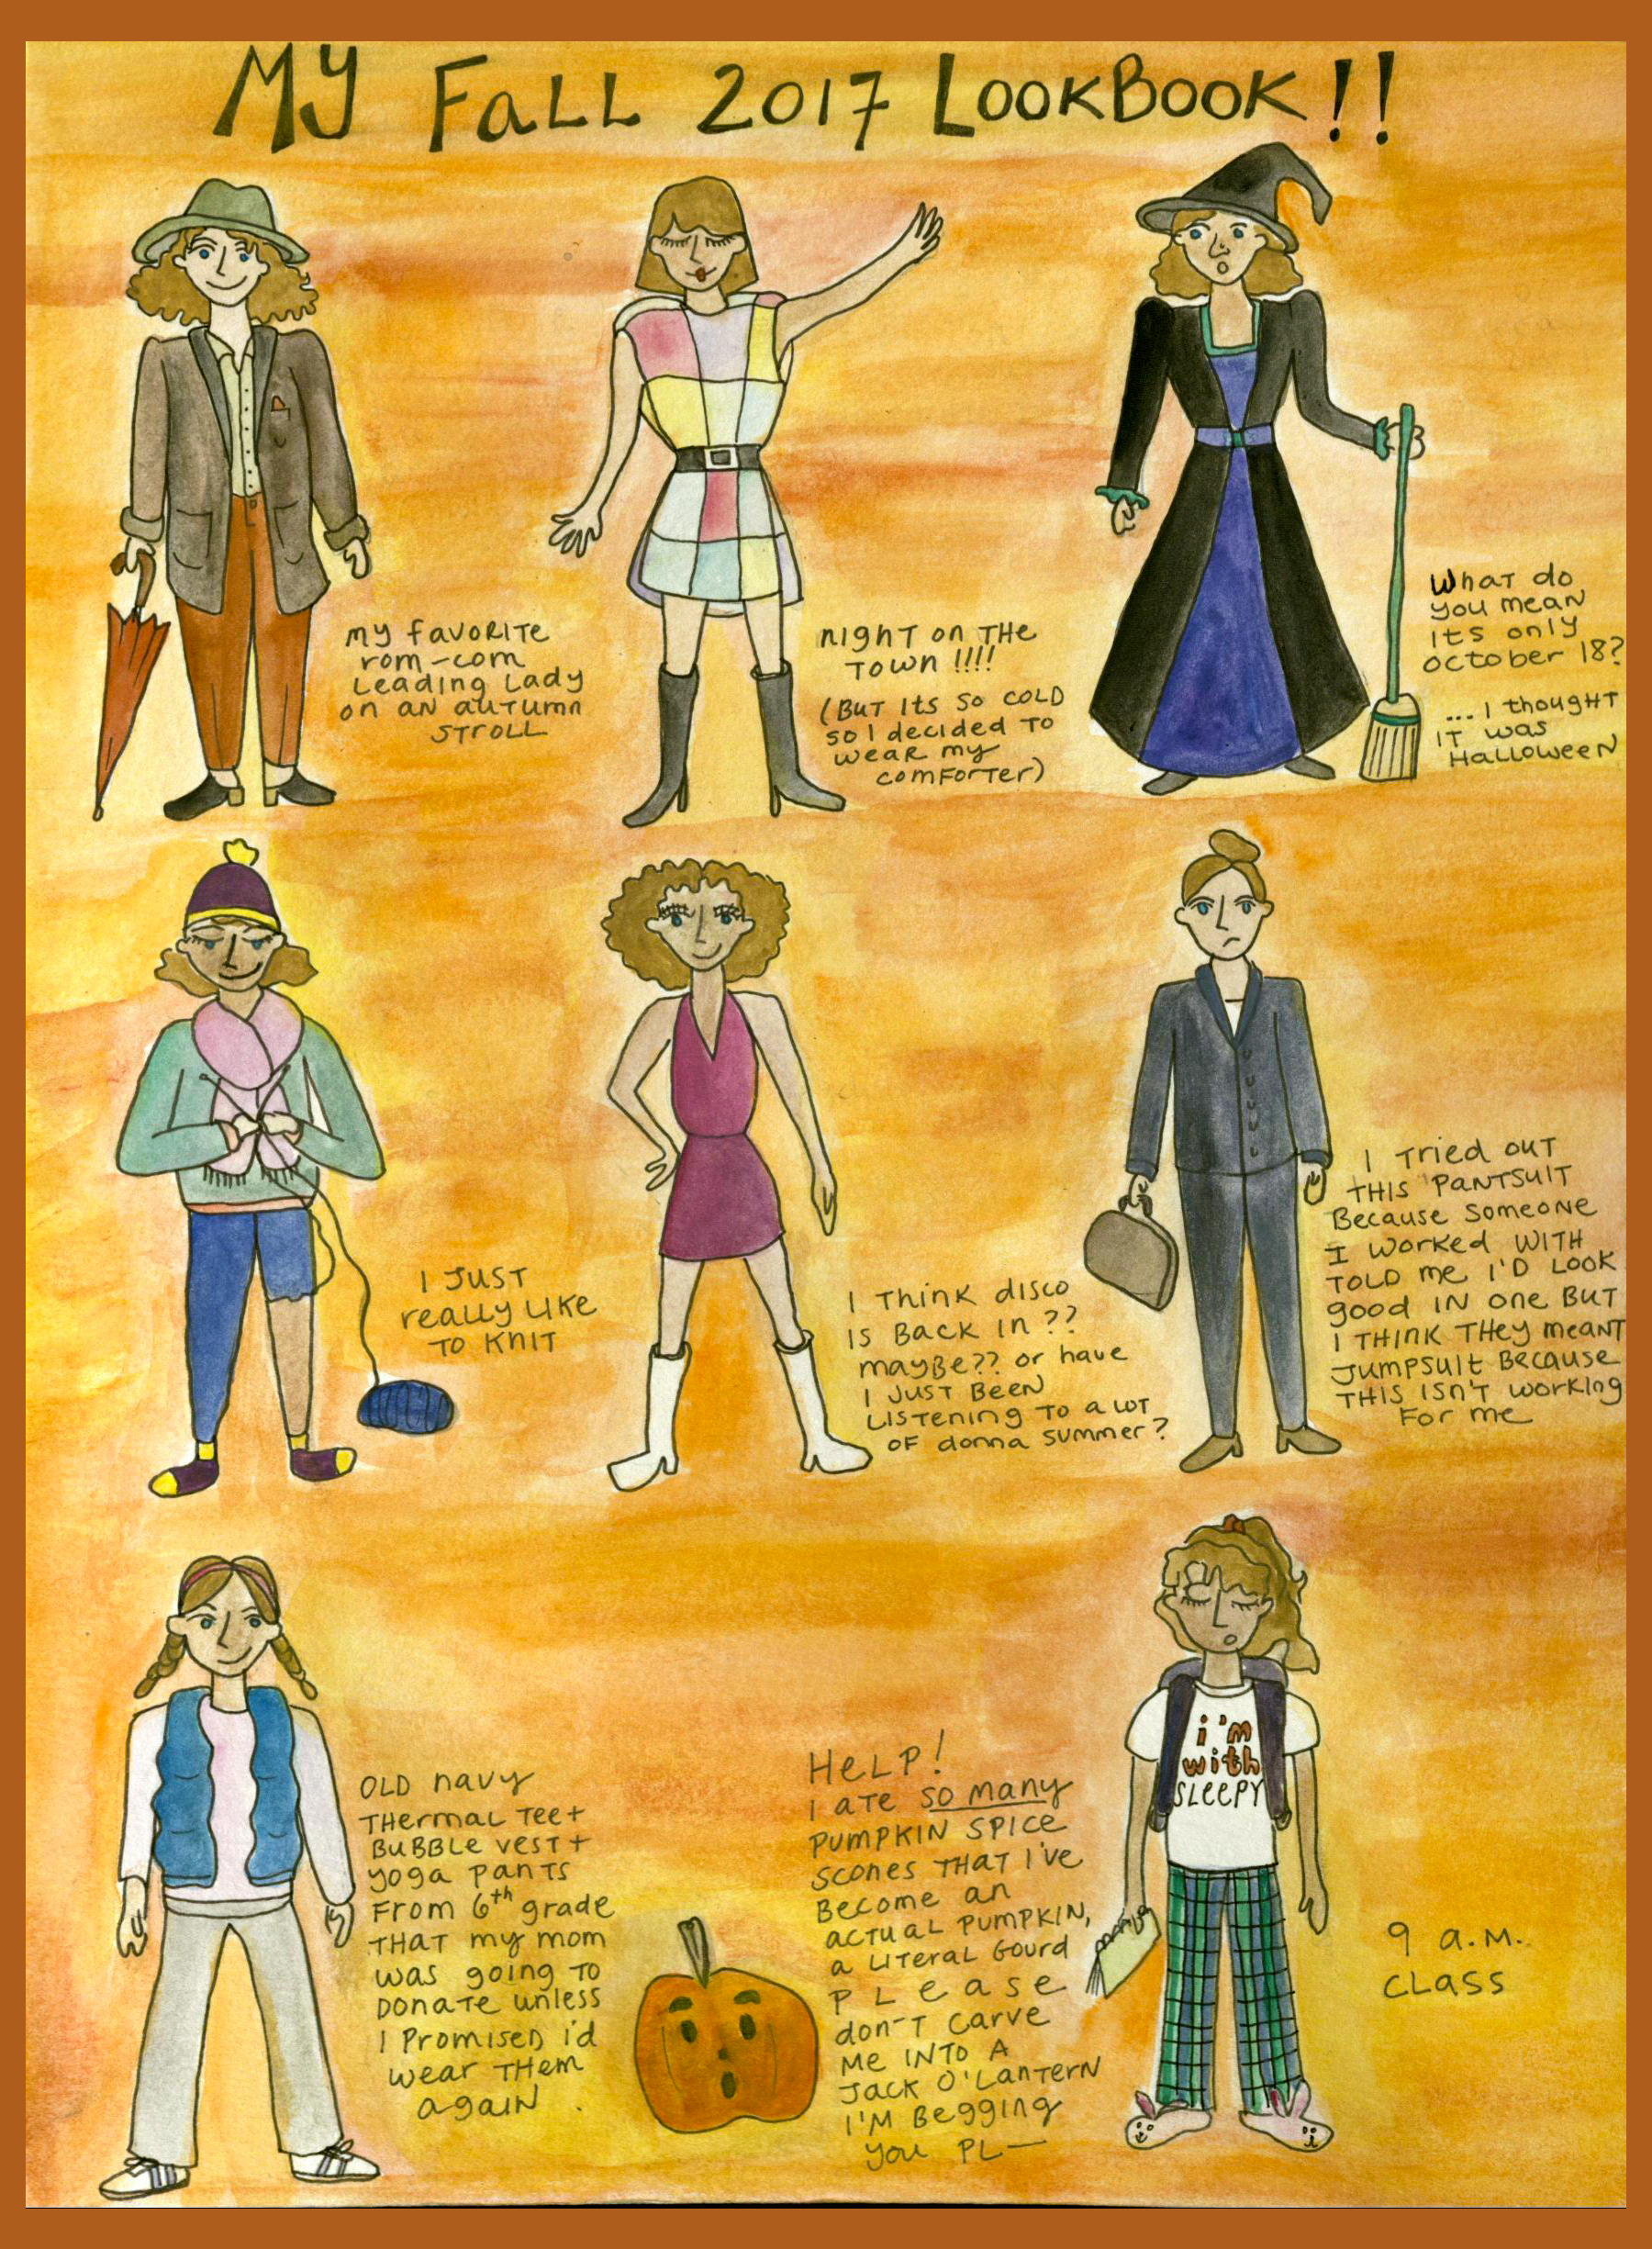 My Fall 2017 LookBook!!
my favorite
rom-com
Leading Lady
on an autumn
stroll
night on the
town !!!!
(But its so cold
so I decided to
wear my
comforter)
What do
you mean
its only
october 18?
...I thought
it was
Halloween
I just
really like
to knit
I think disco
is back in??
maybe?? or have
I just been
listening to a lot
of donna summer?
I tried out
this pantsuit
Because someone
I worked with
told me I'd look
good in one but
I think they meant
jumpsuit because
this isn't working
for me
Old navy
thermal tee +
bubble vest +
yoga pants
from 6th grade
that my mom
was going to
donate unless
I promised i'd
wear them
again.
Help!
I ate so many
pumpkin spice
scones that I've
become an
actual pumpkin,
a literal gourd
please
don't carve
me into a
jack o'lantern
I'm begging
you pl—
i'm
with
sleepy
9 a.m.
class